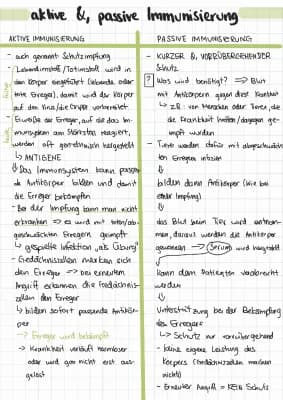 aktive &, passive Immunisierung
AKTIVE IMMUNISIERUNG
- auch genannt Schutzimpfung
- Lebendimpfstoff/Totimpfstoff wird in
den Körper eingeführt (lebende oder
tote Erreger), damit wird der Körper
auf den Virus/die Grippe vorbereitet
- Eiweiße der Erreger, auf die das Im-
munsystem am stärksten reagiert,
werden oft gentechnisch hergestellt
↳ ANTIGENE
⇓ Das Immunsystem kann passen-
de Antikörper bilden und damit
die Erreger bekämpfen
- Bei der Impfung kann man nicht
erkranken → es wird mit toten/ab-
geschwächten Erregern geimpft
↳ gespielte Infektion „als Übung"
- Gedächtniszellen merken sich
den Erreger → bei erneutem
Angriff erkennen die Gedächtnis-
zellen den Erreger
↳ bilden sofort passende Antikör-
per
→ Erreger wird bekämpft
↳ Krankheit verläuft harmloser
oder wird gar nicht erst aus-
gelöst
früher
heute
PASSIVE IMMUNISIERUNG
- KURZER &, VORRÜBERGEHENDER
Schutz
? Was wird benötigt? ⇒ Blut
mit Antikörpern gegen diese Krankheit
↳ z.B. von Menschen oder Tieren, die
die Krankheit hatten/dagegen ge-
impft wurden
- Tiere werden dafür mit abgeschwäch-
ten Erregern infiziert
⇓
bilden dann Antikörper (wie bei
einer Impfung)
⇓
das Blut beim Tier wird entnom-
men, daraus werden die Antikörper
gewonnen → Serum wird hergestellt
⇓
kann dem Patienten verabreicht
werden
⇓
Unterstützung bei der Bekämpfung
des Erregers
↳ Schutz nur vorrübergehend
- keine eigene Leistung des
Körpers (Gedächtniszellen merken
nichts)
- Erneuter Angriff = KEIN Schutz